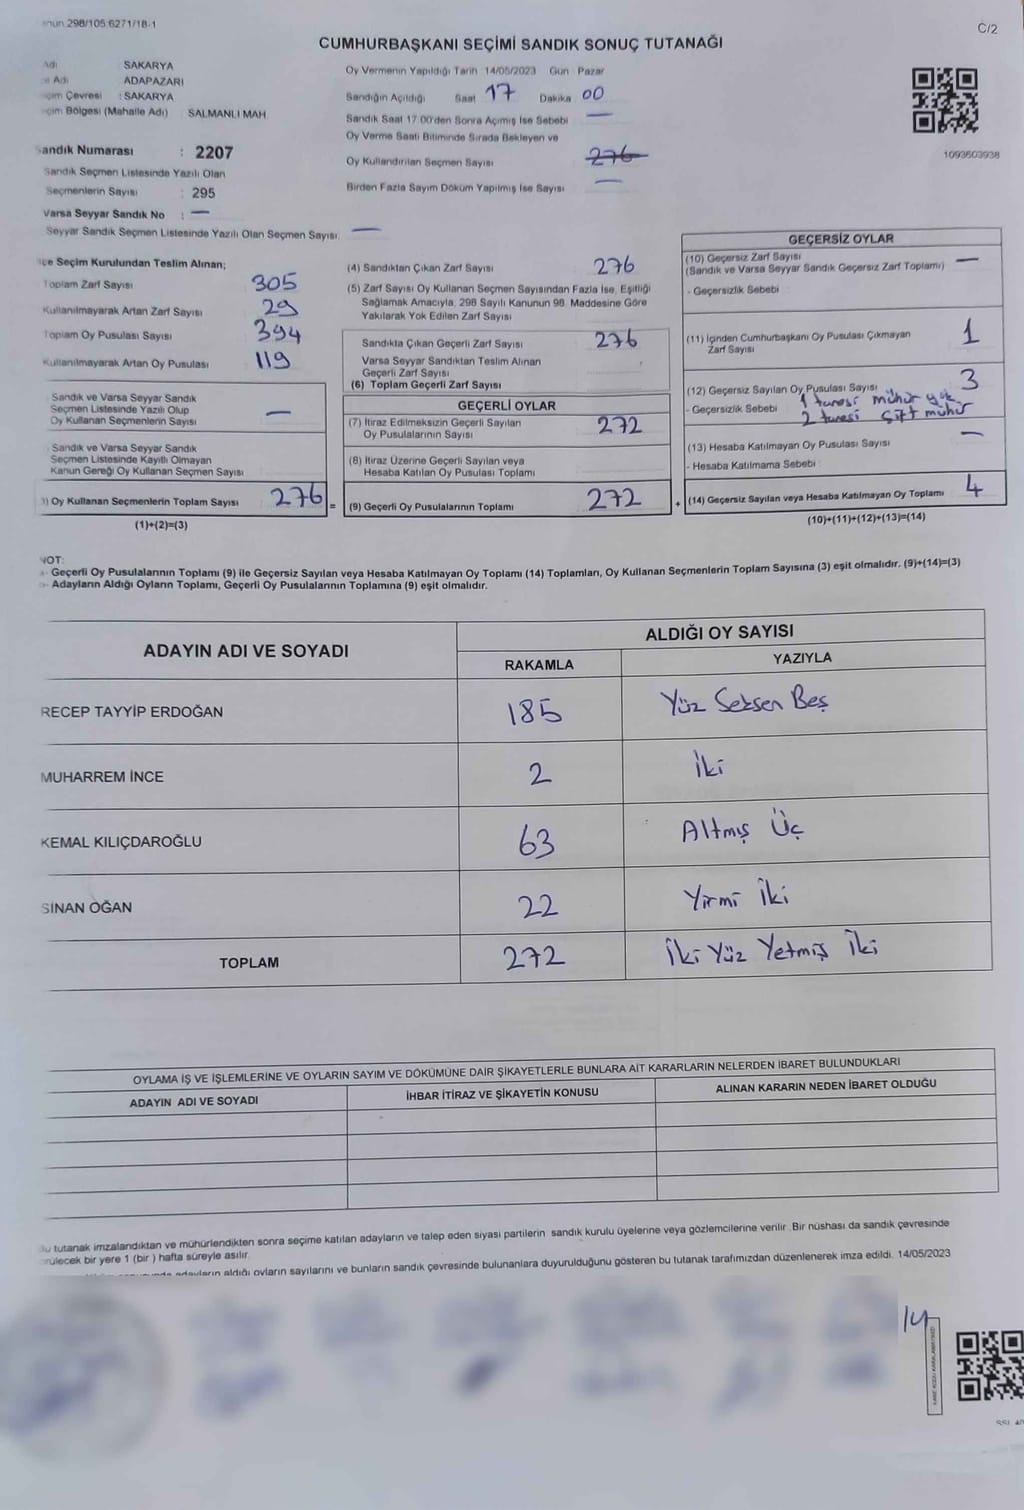 298/105.6271/18-1
C/2
CUMHURBAŞKANI SEÇİMİ SANDIK SONUÇ TUTANAĞI
Adı SAKARYA
Adı ADAPAZARI
Çevresi : SAKARYA
Bölgesi (Mahalle Adı) : SALMANLI MAH
Sandık Numarası : 2207
Sandık Seçmen Listesinde Yazılı Olan
Seçmenlerin Sayısı : 295
Varsa Seyyar Sandık No : —
Seyyar Sandık Seçmen Listesinde Yazılı Olan Seçmen Sayısı. —
Oy Vermenin Yapıldığı Tarih 14/05/2023 Gün Pazar
Sandığın Açıldığı Saat 17 Dakika 00
Sandık Saat 17:00'den Sonra Açımış İse Sebebi —
Oy Verme Saati Bitiminde Sırada Bekleyen ve
Oy Kullandırılan Seçmen Sayısı 276
Birden Fazla Sayım Döküm Yapılmış İse Sayısı —
1093603938
Seçim Kurulundan Teslim Alınan;
Toplam Zarf Sayısı 305
Kullanılmayarak Artan Zarf Sayısı 29
Toplam Oy Pusulası Sayısı 394
Kullanılmayarak Artan Oy Pusulası 119
Sandık ve Varsa Seyyar Sandık
Seçmen Listesinde Yazılı Olup
Oy Kullanan Seçmenlerin Sayısı —
Sandık ve Varsa Seyyar Sandık
Seçmen Listesinde Kayıtlı Olmayan
Kanun Gereği Oy Kullanan Seçmen Sayısı
) Oy Kullanan Seçmenlerin Toplam Sayısı 276 =
(1)+(2)=(3)
(4) Sandıktan Çıkan Zarf Sayısı 276
(5) Zarf Sayısı Oy Kullanan Seçmen Sayısından Fazla İse, Eşitliği
Sağlamak Amacıyla, 298 Sayılı Kanunun 98. Maddesine Göre
Yakılarak Yok Edilen Zarf Sayısı
Sandıkta Çıkan Geçerli Zarf Sayısı 276
Varsa Seyyar Sandıktan Teslim Alınan
Geçerli Zarf Sayısı
(6) Toplam Geçerli Zarf Sayısı
GEÇERLİ OYLAR
(7) İtiraz Edilmeksizin Geçerli Sayılan
Oy Pusulalarının Sayısı 272
(8) İtiraz Üzerine Geçerli Sayılan veya
Hesaba Katılan Oy Pusulası Toplamı
(9) Geçerli Oy Pusulalarının Toplamı 272 +
GEÇERSİZ OYLAR
(10) Geçersiz Zarf Sayısı —
(Sandık ve Varsa Seyyar Sandık Geçersiz Zarf Toplamı)
- Geçersizlik Sebebi
(11) İçinden Cumhurbaşkanı Oy Pusulası Çıkmayan
Zarf Sayısı 1
(12) Geçersiz Sayılan Oy Pusulası Sayısı 3
- Geçersizlik Sebebi 1 tanesi mühür yok
2 tanesi çift mühür
(13) Hesaba Katılmayan Oy Pusulası Sayısı —
- Hesaba Katılmama Sebebi
(14) Geçersiz Sayılan veya Hesaba Katılmayan Oy Toplamı 4
(10)+(11)+(12)+(13)=(14)
NOT:
Geçerli Oy Pusulalarının Toplamı (9) ile Geçersiz Sayılan veya Hesaba Katılmayan Oy Toplamı (14) Toplamları, Oy Kullanan Seçmenlerin Toplam Sayısına (3) eşit olmalıdır. (9)+(14)=(3)
Adayların Aldığı Oyların Toplamı, Geçerli Oy Pusulalarının Toplamına (9) eşit olmalıdır.
ADAYIN ADI VE SOYADI ALDIĞI OY SAYISI
RAKAMLA YAZIYLA
RECEP TAYYİP ERDOĞAN 185 Yüz Seksen Beş
MUHARREM İNCE 2 İki
KEMAL KILIÇDAROĞLU 63 Altmış Üç
SİNAN OĞAN 22 Yirmi İki
TOPLAM 272 İki Yüz Yetmiş İki
OYLAMA İŞ VE İŞLEMLERİNE VE OYLARIN SAYIM VE DÖKÜMÜNE DAİR ŞİKAYETLERLE BUNLARA AİT KARARLARIN NELERDEN İBARET BULUNDUKLARI
ADAYIN ADI VE SOYADI İHBAR İTİRAZ VE ŞİKAYETİN KONUSU ALINAN KARARIN NEDEN İBARET OLDUĞU
tutanak imzalandıktan ve mühürlendikten sonra seçime katılan adayların ve talep eden siyasi partilerin sandık kurulu üyelerine veya gözlemcilerine verilir. Bir nüshası da sandık çevresinde
bir yere 1 (bir ) hafta süreyle asılır.
adayların aldığı oyların sayılarını ve bunların sandık çevresinde bulunanlara duyurulduğunu gösteren bu tutanak tarafımızdan düzenlenerek imza edildi. 14/05/2023
14